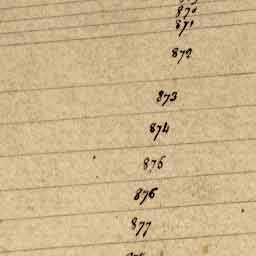 870
871
872
873
874
875
876
877